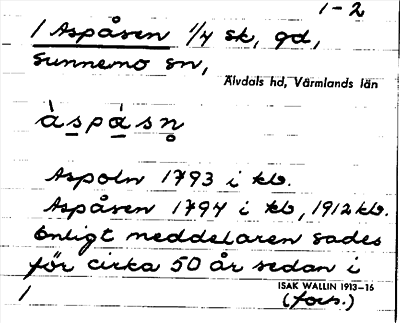 1-2
1 Aspåsen 1/4 sk, gd,
Sunnemo sn,
Älvdals hd, Värmlands län
àspåsn̥
Aspoln 1793 i kb.
Aspåsen 1794 i kb, 1912 kb.
Enligt meddelaren sades
för cirka 50 år sedan i
1
ISAK WALLIN 1913-16
(fors.)